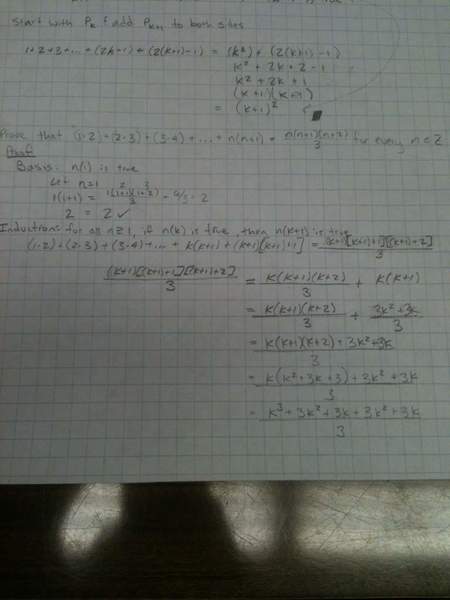 start with Pk & add Pk+1 to both sites
1+2+3+...+(2k-1)+(2(k+1)-1) = (k²)+(2(k+1)-1)
k²+2k+2-1
k²+2k+1
(k+1)(k+1)
= (k+1)²
Prove that (1·2)+(2·3)+(3·4)+...+n(n+1) = n(n+1)(n+2)/3 for every n ∈ Z
Proof
Basis: n(1) is true
Let n=1
1(1+1) = 1(1+1)(1+2)/3 = 6/3 = 2
2 = 2 ✓
Induction: for all n≥1, if n(k) is true, then n(k+1) is true
(1·2)+(2·3)+(3·4)+...+k(k+1)+(k+1)[(k+1)+1] = (k+1)[(k+1)+1][(k+1)+2]/3
(k+1)[(k+1)+1][(k+1)+2]/3 = k(k+1)(k+2)/3 + k(k+1)
= k(k+1)(k+2)/3 + 3k²+3k/3
= k(k+1)(k+2)+3k²+3k/3
= k(k²+3k+3)+3k²+3k/3
= k³+3k²+3k+3k²+3k/3